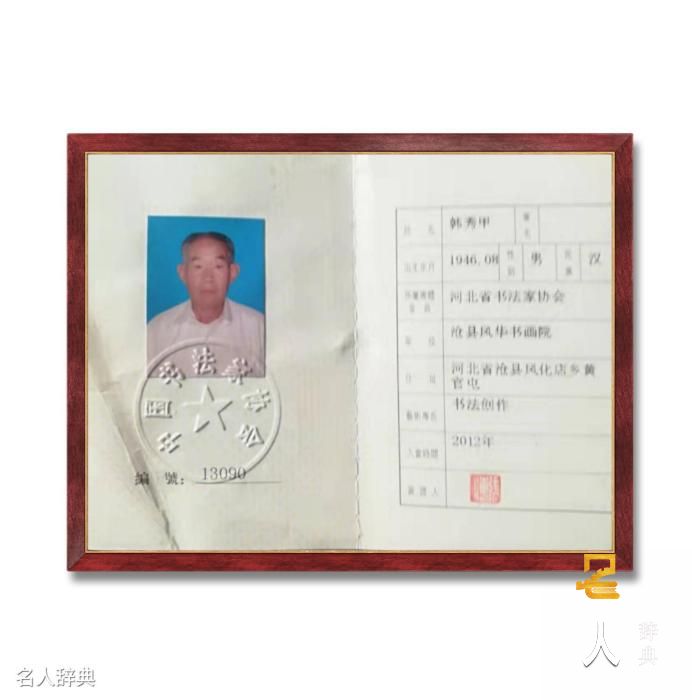 姓 名 韩秀甲 署名
出生年月 1946.08 性别 男 民族 汉
河北省书法家协会
单 位 沧县风华书画院
住 址 河北省沧县风化店乡黄
官屯
书法创作
入会時間 2012年
中国书法家协会
编 號: 13090
名
人
辞
典
名人辞典